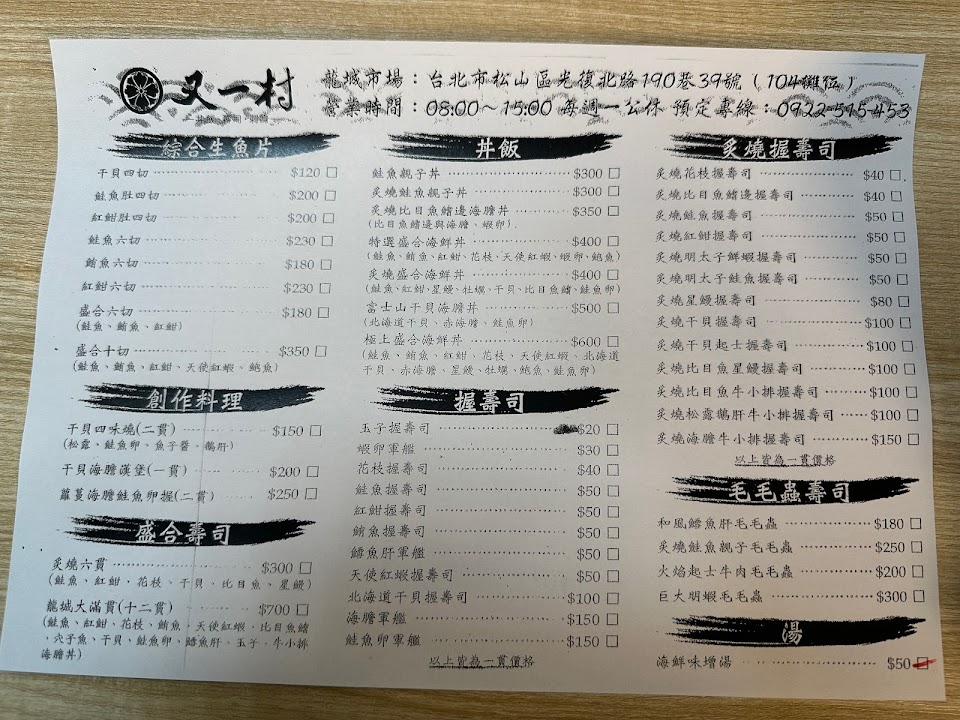 又一村
龍城市場：台北市松山區光復北路190巷39號（104攤位）
營業時間：08:00～15:00 每週一公休 預定專線：0922-515-453
綜合生魚片
干貝四切 $120 □
鮭魚肚四切 $200 □
紅魽肚四切 $200 □
鮭魚六切 $230 □
鮪魚六切 $180 □
紅魽六切 $230 □
盛合六切 $180 □
(鮭魚、鮪魚、紅魽)
盛合十切 $350 □
(鮭魚、鮪魚、紅魽、天使紅蝦、鮑魚)
創作料理
干貝四味燒(二貫) $150 □
(松露、鮭魚卵、魚子醬、鵝肝)
干貝海膽漢堡(一貫) $200 □
蘿蔓海膽鮭魚卵握(二貫) $250 □
盛合壽司
炙燒六貫 $300 □
(鮭魚、紅魽、花枝、干貝、比目魚、星鰻)
龍城大滿貫(十二貫) $700 □
(鮭魚、紅魽、花枝、鮪魚、天使紅蝦、比目魚鰭
、穴子魚、干貝、鮭魚卵、鱈魚肝、玉子、牛小排
海膽丼)
丼飯
鮭魚親子丼 $300 □
炙燒鮭魚親子丼 $300 □
炙燒比目魚鰭邊海膽丼 $350 □
(比目魚鰭邊與海膽、蝦卵)
特選盛合海鮮丼 $400 □
(鮭魚、鮪魚、紅魽、花枝、天使紅蝦、蝦卵、鮑魚)
炙燒盛合海鮮丼 $400 □
(鮭魚、紅魽、星鰻、牡蠣、干貝、比目魚鰭、鮭魚卵)
富士山干貝海膽丼 $500 □
(北海道干貝、赤海膽、鮭魚卵)
極上盛合海鮮丼 $600 □
(鮭魚、鮪魚、紅魽、花枝、天使紅蝦、北海道
干貝、赤海膽、星鰻、牡蠣、鮑魚、鮭魚卵)
握壽司
玉子握壽司 $20 □
蝦卵軍艦 $30 □
花枝握壽司 $40 □
鮭魚握壽司 $50 □
紅魽握壽司 $50 □
鮪魚握壽司 $50 □
鱈魚肝軍艦 $50 □
天使紅蝦握壽司 $50 □
北海道干貝握壽司 $100 □
海膽軍艦 $150 □
鮭魚卵軍艦 $150 □
以上皆為一貫價格
炙燒握壽司
炙燒花枝握壽司 $40 □
炙燒比目魚鰭邊握壽司 $40 □
炙燒鮭魚握壽司 $50 □
炙燒紅魽握壽司 $50 □
炙燒明太子鮮蝦握壽司 $50 □
炙燒明太子鮭魚握壽司 $50 □
炙燒星鰻握壽司 $80 □
炙燒干貝握壽司 $100 □
炙燒干貝起士握壽司 $100 □
炙燒比目魚星鰻握壽司 $100 □
炙燒比目魚牛小排握壽司 $100 □
炙燒松露鵝肝牛小排握壽司 $100 □
炙燒海膽牛小排握壽司 $150 □
以上皆為一貫價格
毛毛蟲壽司
和風鱈魚肝毛毛蟲 $180 □
炙燒鮭魚親子毛毛蟲 $250 □
火焰起士牛肉毛毛蟲 $200 □
巨大明蝦毛毛蟲 $300 □
湯
海鮮味增湯 $50 □